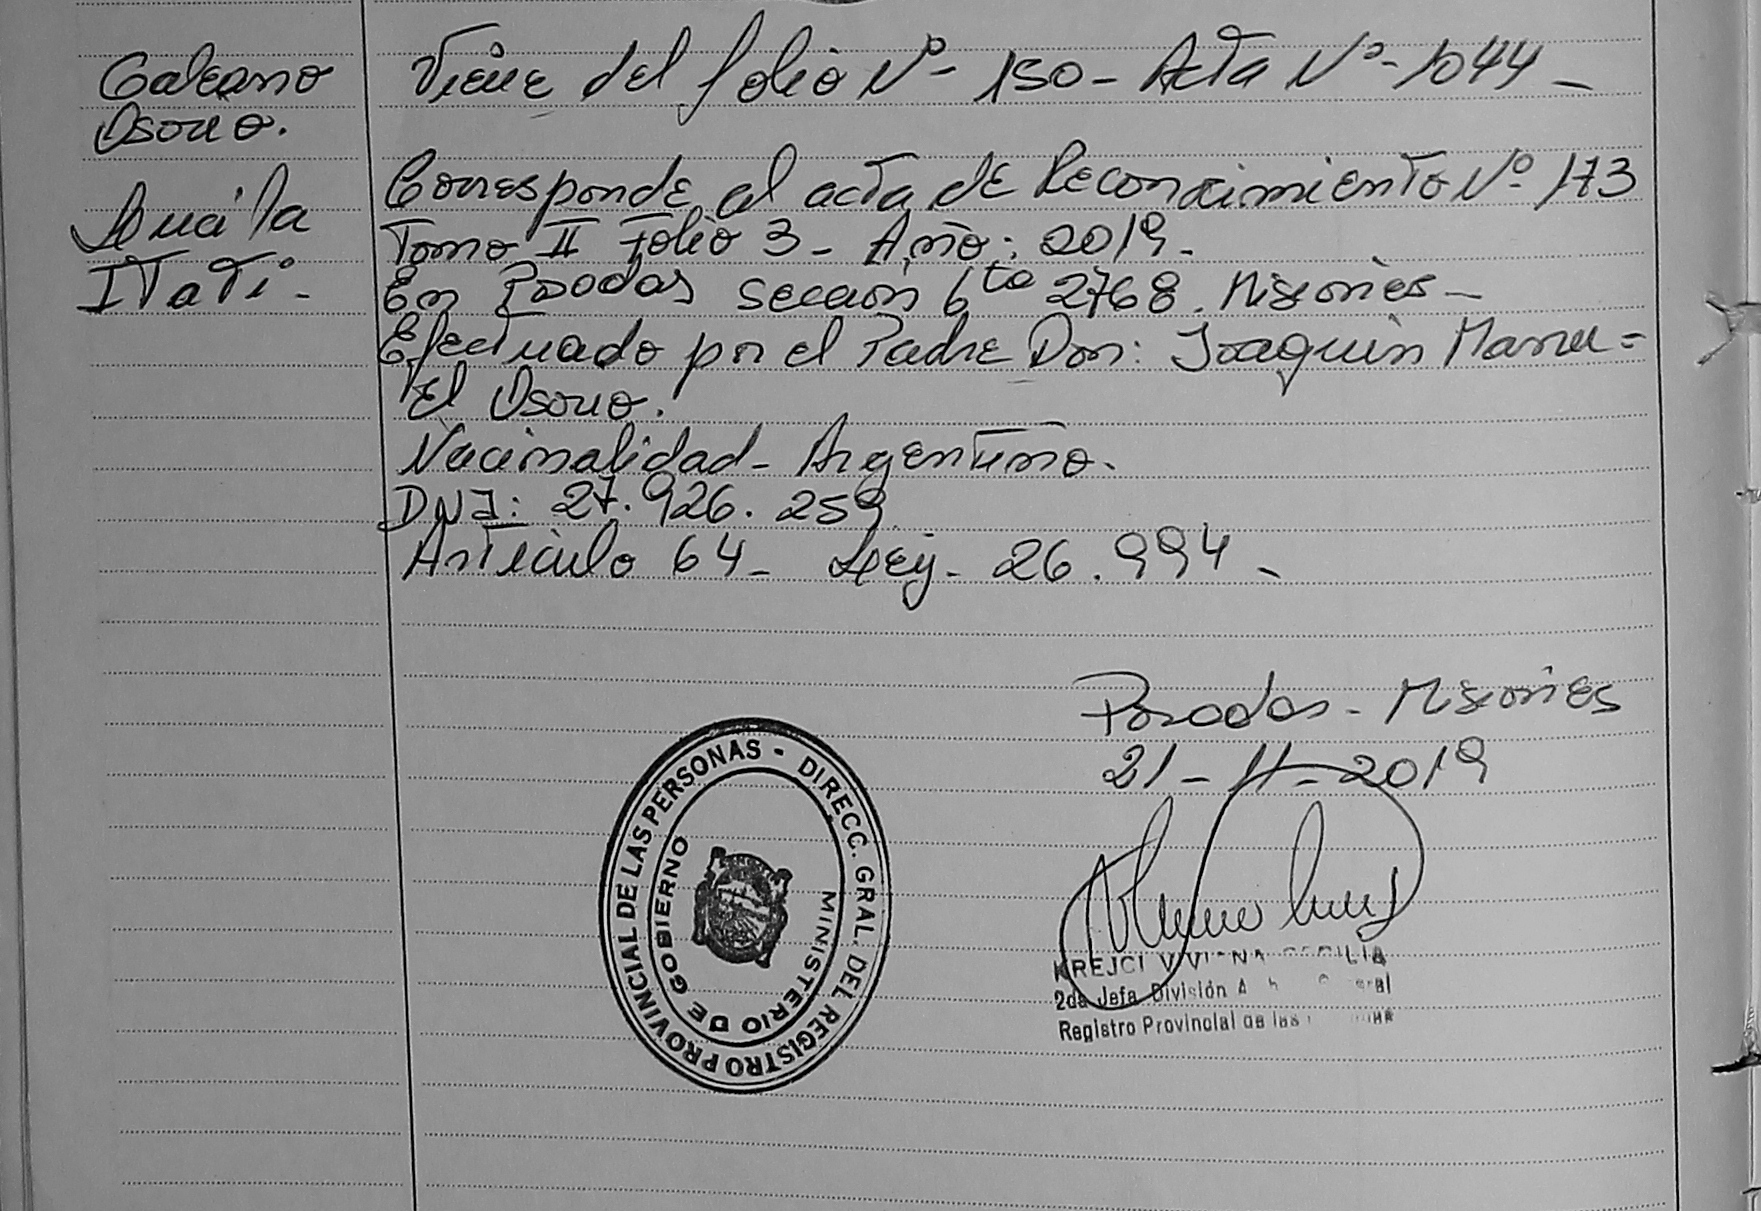 Galeano
Osorio.
Lucila
Itatí.
Viene del folio Nº- 150- Acta Nº- 1044-
Corresponde al acta de Reconocimiento Nº 173
Tomo II Folio 3- Año: 2019-
En Posadas seccion 6ta 2768. Misiones-
Efectuado por el Padre Don: Joaquin Manu=
El Osorio.
Nacionalidad- Argentino.
DNI: 27.926.259.
Articulo 64- Ley- 26.994-
Posadas- Misiones
21-11-2019
DIRECC. GRAL. DEL REGISTRO PROVINCIAL DE LAS PERSONAS -
MINISTERIO DE GOBIERNO
KREJCI VIVIANA CECILIA
2da Jefa División
Registro Provincial de las